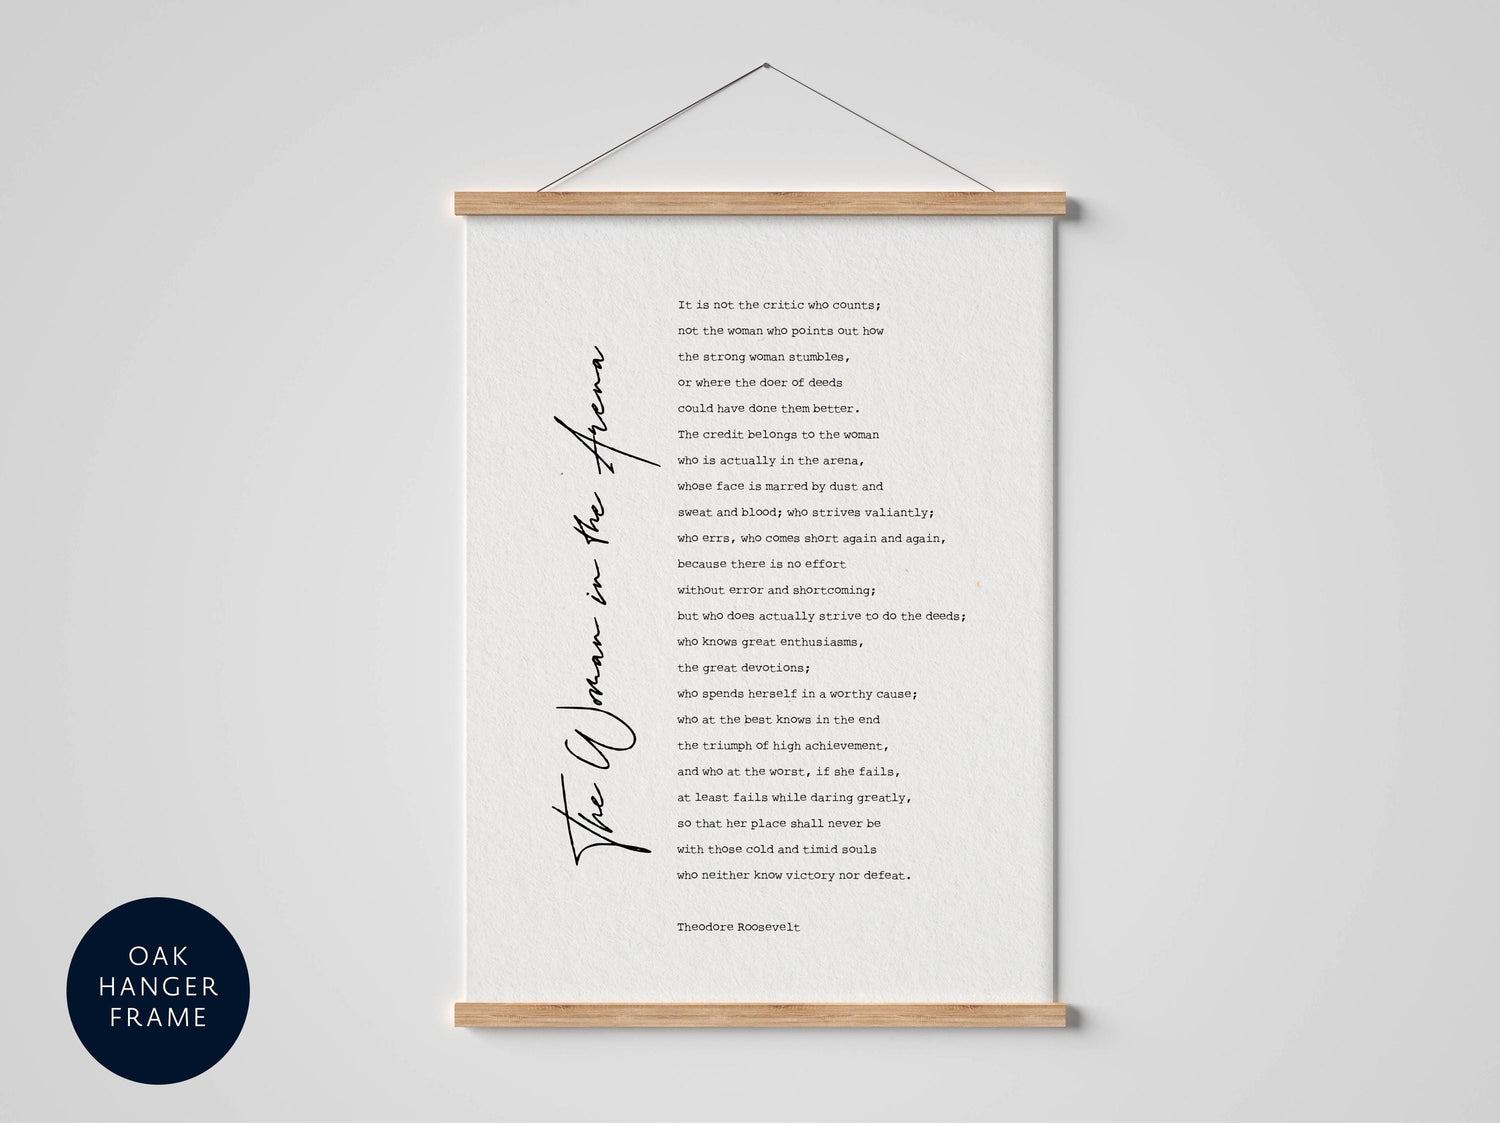 The Woman in the Arena
It is not the critic who counts;
not the woman who points out how
the strong woman stumbles,
or where the doer of deeds
could have done them better.
The credit belongs to the woman
who is actually in the arena,
whose face is marred by dust and
sweat and blood; who strives valiantly;
who errs, who comes short again and again,
because there is no effort
without error and shortcoming;
but who does actually strive to do the deeds;
who knows great enthusiasms,
the great devotions;
who spends herself in a worthy cause;
who at the best knows in the end
the triumph of high achievement,
and who at the worst, if she fails,
at least fails while daring greatly,
so that her place shall never be
with those cold and timid souls
who neither know victory nor defeat.
Theodore Roosevelt
OAK
HANGER
FRAME